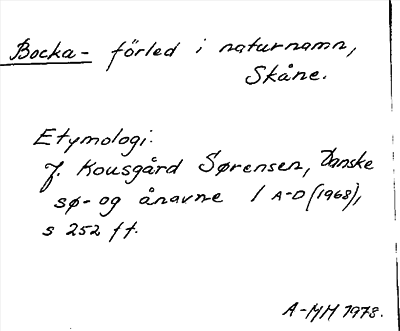 Bocka- förled i naturnamn,
Skåne.
Etymologi:
J. Kousgård Sørensen, Danske
sø- og ånavne 1 A-D (1968),
s 252 ff.
A-MH 1978.